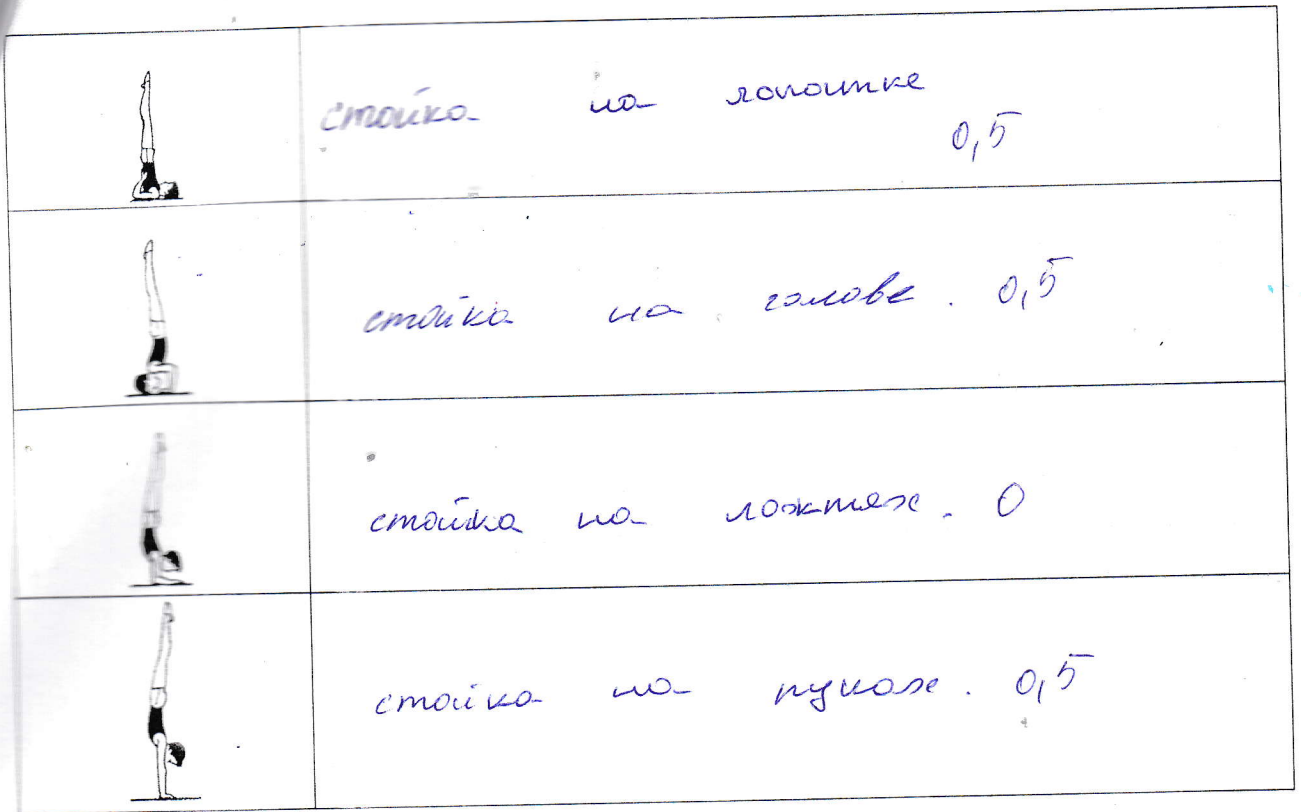 стойка на лопатке
0,5
стойка на голове. 0,5
стойка на локтях. 0
стойка на руках. 0,5